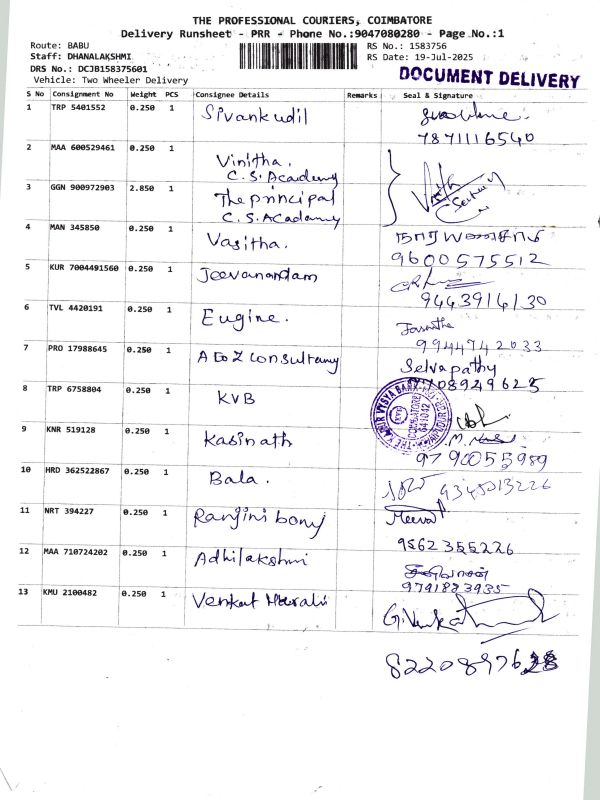 THE PROFESSIONAL COURIERS, COIMBATORE
Delivery Runsheet - PRR - Phone No.:9047080280 - Page No.:1
Route: BABU
Staff: DHANALAKSHMI
DRS No.: DCJB158375601
Vehicle: Two Wheeler Delivery
RS No.: 1583756
RS Date: 19-Jul-2025
DOCUMENT DELIVERY
S No Consignment No Weight PCS Consignee Details Remarks Seal & Signature
1 TRP 5401552 0.250 1 Sivankudil
7871116540
2 MAA 600529461 0.250 1 Vinitha. C.S. Academy
3 GGN 900972903 2.850 1 The principal C.S. Academy
4 MAN 345850 0.250 1 Vasitha.
9600575512
5 KUR 7004491560 0.250 1 Jeevanandam
9443916130
6 TVL 4420191 0.250 1 Eugine.
9944742033
7 PRO 17988645 0.250 1 A to Z consultancy Selvapathy
8 TRP 6758804 0.250 1 KVB
THE KARUR VYSYA BANK COIMBATORE 641042
9 KNR 519128 0.250 1 Kasinath
9790055989
10 HRD 362522867 0.250 1 Bala.
11 NRT 394227 0.250 1 Ranjini bony
9562355226
12 MAA 710724202 0.250 1 Adhilakshmi
9791823935
13 KMU 2100482 0.250 1 Venkat Murali